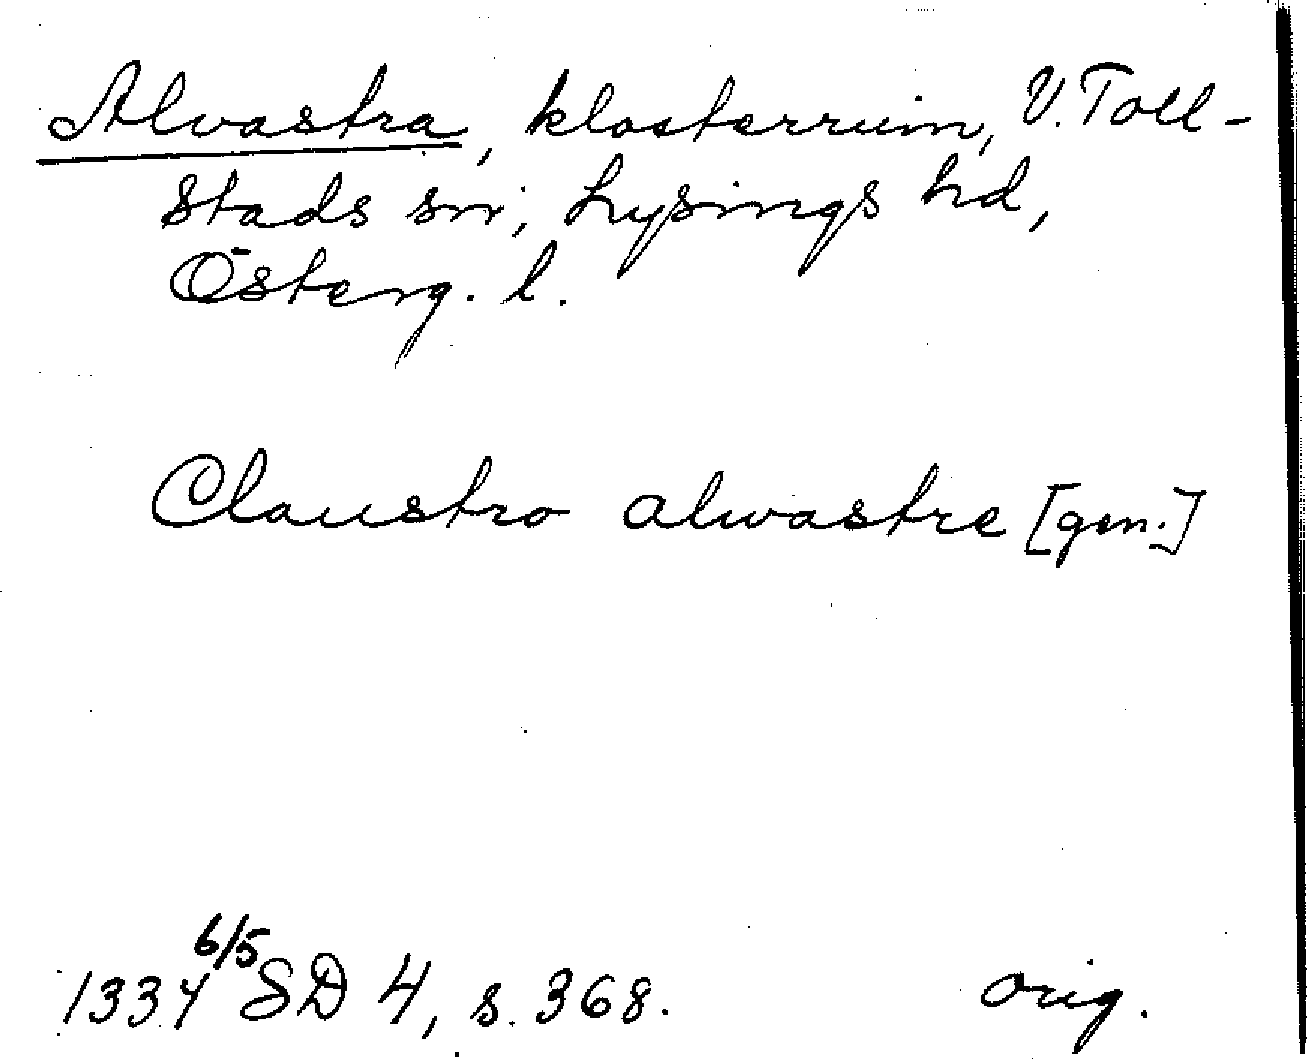 Alvastra, klosterruin, V. Toll-
stads sn, Lysings hd,
Österg. l.
Claustro alwastre [gen.]
1334 6/5 SD 4, s. 368. orig.